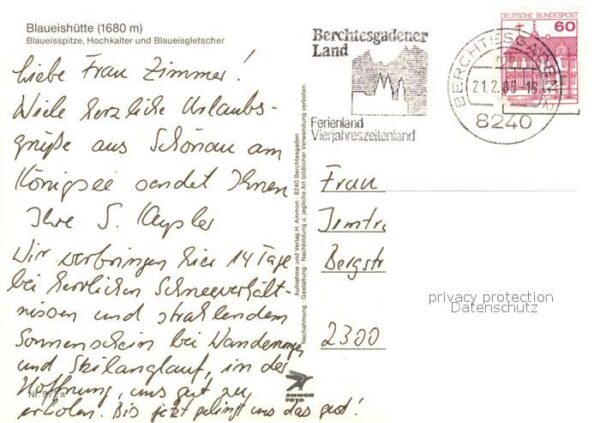 Blaueishütte (1680 m)
Blaueisspitze, Hochkalter und Blaueisgletscher
Liebe Frau Zimmer!
Viele herzliche Urlaubs-
grüße aus Schönau am
Königsee sendet Ihnen
Ihre S.
Wir verbringen hier 14 Tage
bei herrlichen Schneeverhält-
nissen und strahlendem
Sonnenschein bei Wanderungen
und Skilanglauf, in der
Hoffnung, uns gut zu
erholen. Bis jetzt gelingt uns das gut!
Nr.
AMMON
FOTO
Aufnahme und Verlag H. Ammon · 8240 Berchtesgaden
Nachahmung · Gestaltung · Nachbildung u. jegliche Art bildlicher Verwendung verboten
Berchtesgadener
Land
Ferienland
Vierjahreszeitenland
BERCHTESGADEN
21.2.
8240
DEUTSCHE BUNDESPOST
60
Frau
Bergstr
2300
privacy protection
Datenschutz